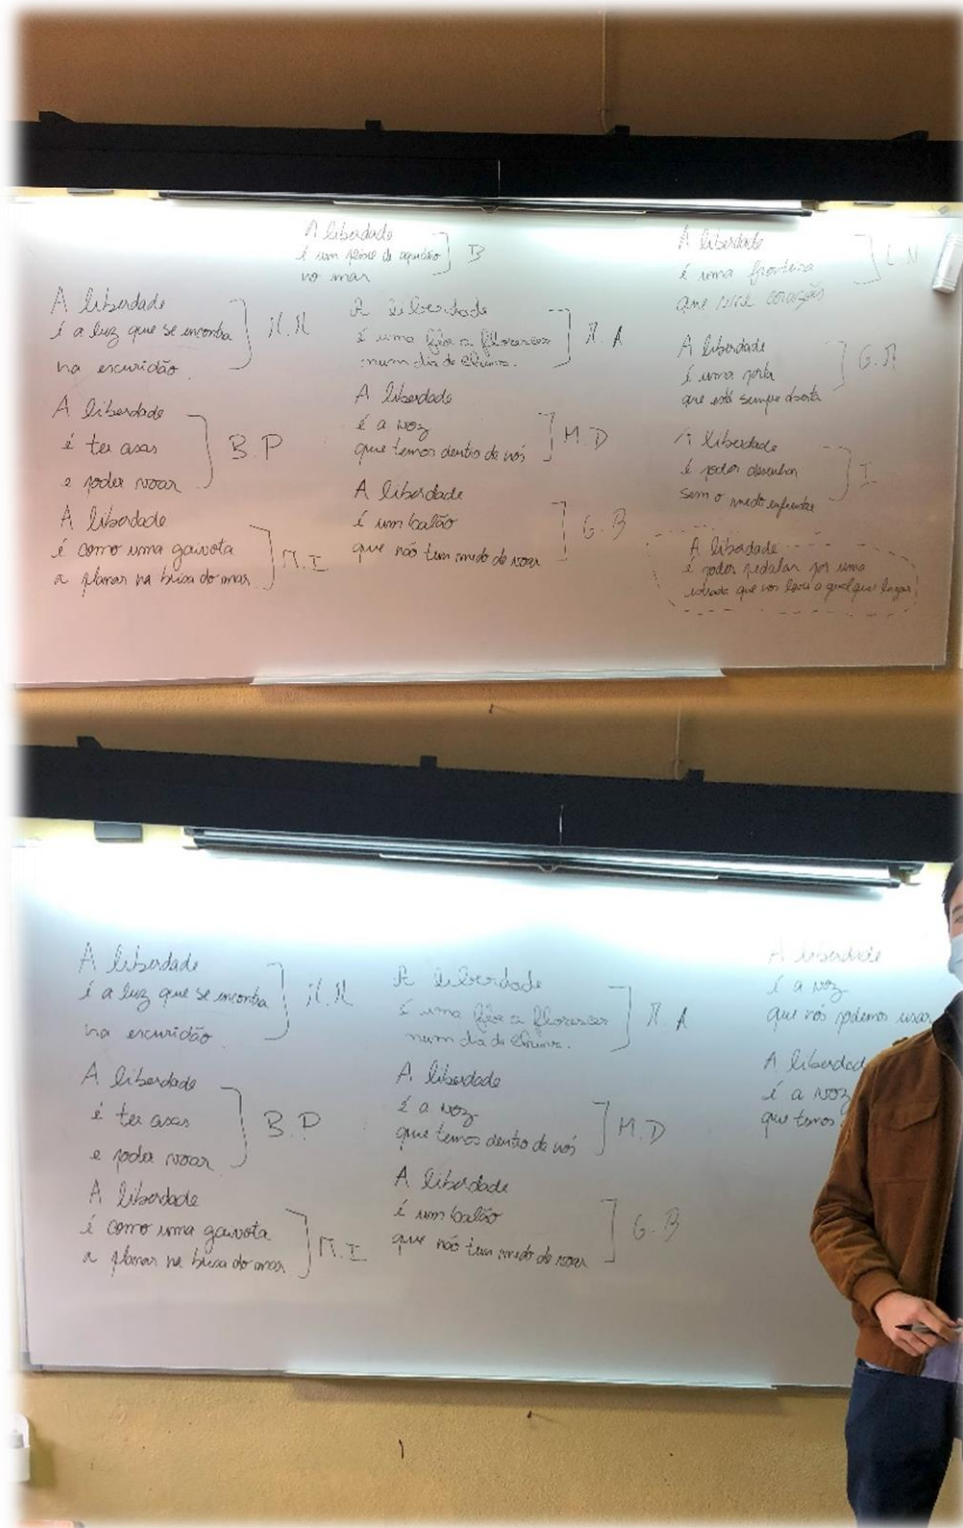 A liberdade
é um peixe de aquário
no mar
B
A liberdade
é a luz que se encontra
na escuridão.
A liberdade
é ter asas
e poder voar
B.P
A liberdade
é como uma gaivota
a planar na brisa do mar
M.I
A liberdade
é uma flor a florescer
num dia de chuva.
A
A liberdade
é a voz
que temos dentro de nós
M.D
A liberdade
é um balão
que não tem medo de voar
G.B
A liberdade
é uma fronteira
que coração
L.N
A liberdade
é uma porta
que está sempre aberta
G.
A liberdade
é poder desenhar
sem o medo enfrentar
I
A liberdade
é poder pedalar por uma
estrada que nos leva a qualquer lugar
A liberdade
é a luz que se encontra
na escuridão.
A liberdade
é ter asas
e poder voar
B.P
A liberdade
é como uma gaivota
a planar na brisa do mar
M.I
A liberdade
é uma flor a florescer
num dia de chuva.
A
A liberdade
é a voz
que temos dentro de nós
M.D
A liberdade
é um balão
que não tem medo de voar
G.B
A liberdade
é a voz
que nós podemos usar
A liberdad
é a voz
que temos